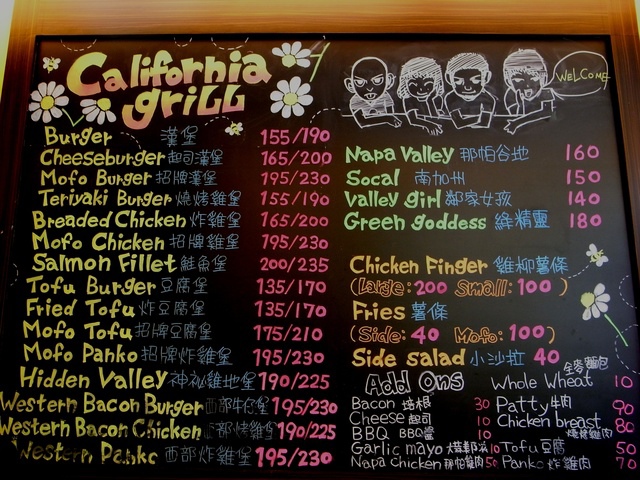 California
grill
WELCOME
Burger 漢堡 155/190
Cheeseburger 起司漢堡 165/200
Mofo Burger 招牌漢堡 195/230
Teriyaki Burger 燒烤雞堡 155/190
Breaded Chicken 炸雞堡 165/200
Mofo Chicken 招牌雞堡 795/230
Salmon Fillet 鮭魚堡 200/235
Tofu Burger 豆腐堡 135/170
Fried Tofu 炸豆腐堡 135/170
Mofo Tofu 招牌豆腐堡 175/210
Mofo Panko 招牌炸雞堡 195/230
Hidden Valley 神祕雞地堡 190/225
Western Bacon Burger 西部牛肉堡 195/230
Western Bacon Chicken 西部燒雞堡 190/225
Western Panko 西部炸雞堡 195/230
Napa Valley 那帕谷地 160
Socal 南加州 150
Valley girl 鄰家女孩 140
Green goddess 綠精靈 180
Chicken Finger 雞柳薯條
(Large: 200 Small: 100)
Fries 薯條
(Side: 40 Mofo: 100)
Side salad 小沙拉 40
Add Ons
Bacon 培根 30
Cheese 起司 10
BBQ BBQ醬 10
Garlic mayo 10
Napa Chicken 那帕雞肉 50
全麥麵包
Whole Wheat 10
Patty 牛肉 90
Chicken breast 80
燒烤雞肉
Tofu 豆腐 50
Panko 炸雞肉 70